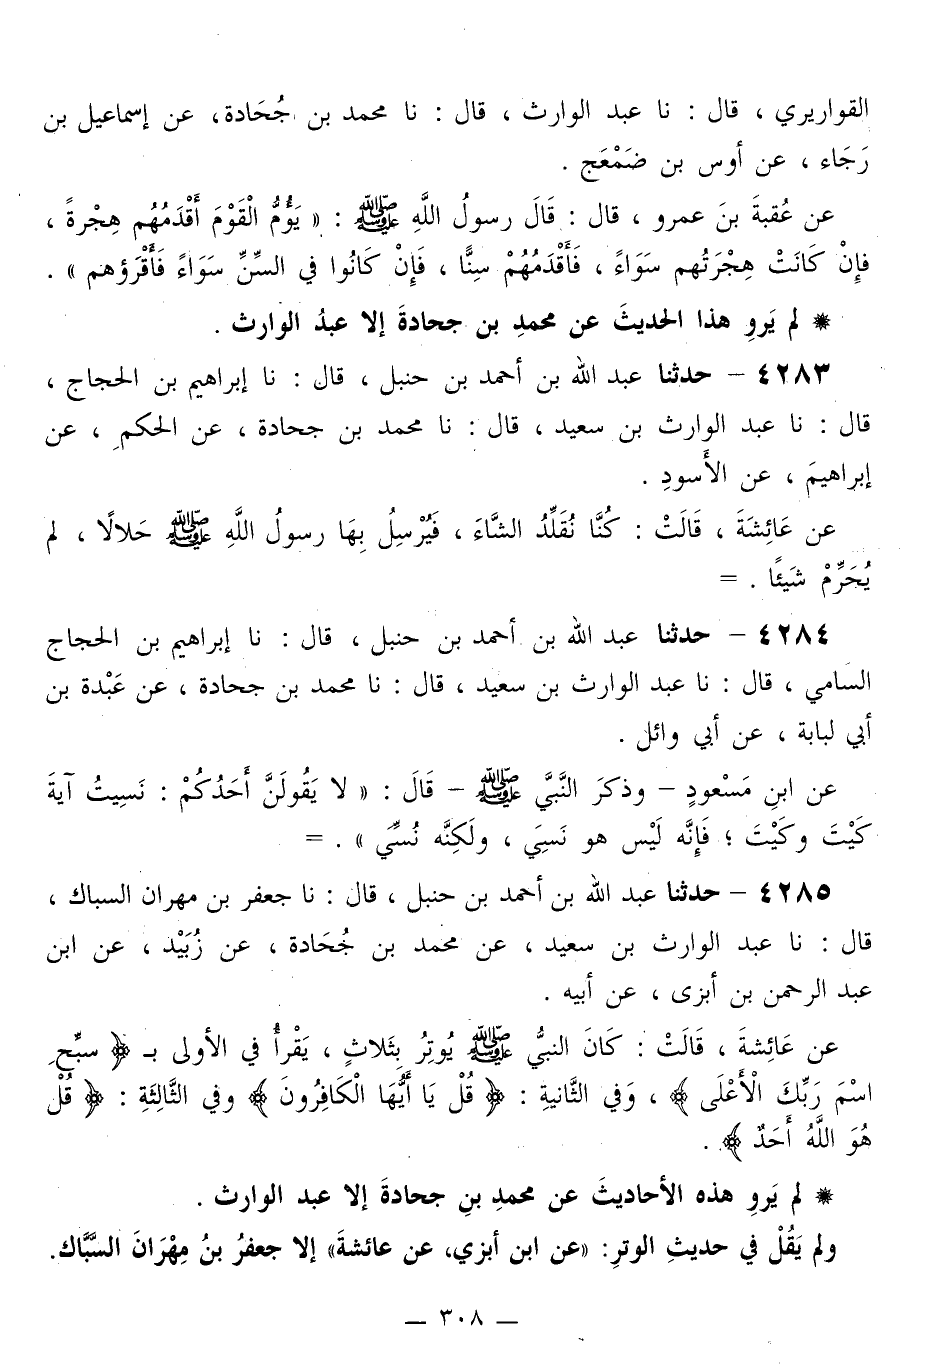 القواريري ، قال : نا عبد الوارث ، قال : نا محمد بن جُحَادة، عن إسماعيل بن
رَجَاء ، عن أوس بن ضَمْعَج .
عن عُقبةَ بنَ عمرو ، قال : قَالَ رسولُ اللَّهِ ﷺ : « يَؤُمُّ الْقَوْمَ أَقْدَمُهُم هِجْرةً ،
فإِنْ كَانَتْ هِجْرَتُهم سَوَاءً ، فَأَقْدَمُهُمْ سِنًّا ، فَإِنْ كَانُوا في السِّنِّ سَوَاءً فَأَقْرَؤهم » .
* لم يَروِ هذا الحديثَ عن محمدِ بن جحادةَ إلا عبدُ الوارث .
٤٢٨٣ – حدثنا عبد الله بن أحمد بن حنبل ، قال : نا إبراهيم بن الحجاج ،
قال : نا عبد الوارث بن سعيد ، قال : نا محمد بن جحادة ، عن الحكمِ ، عن
إبراهيمَ ، عن الأَسودِ .
عن عَائِشَةَ ، قَالَتْ : كُنَّا نُقَلِّدُ الشَّاءَ ، فَيُرْسِلُ بِهَا رسولُ اللَّهِ ﷺ حَلالًا ، لم
يُحَرِّمْ شَيئًا . =
٤٢٨٤ – حدثنا عبد الله بن أحمد بن حنبل ، قال : نا إبراهيم بن الحجاج
السَامي ، قال : نا عبد الوارث بن سعيد ، قال : نا محمد بن جحادة ، عن عَبْدة بن
أبي لبابة ، عن أبي وائل .
عن ابنِ مَسْعودٍ – وذكرَ النَّبيَّ ﷺ – قَالَ : « لا يَقُولَنَّ أَحَدُكُمْ : نَسِيتُ آيةَ
كَيْتَ وكَيْتَ ؛ فَإِنَّه لَيْس هو نَسِيَ ، ولَكِنَّه نُسِّي » . =
٤٢٨٥ – حدثنا عبد الله بن أحمد بن حنبل ، قال : نا جعفر بن مهران السباك ،
قال : نا عبد الوارث بن سعيد ، عن محمد بن جُحَادة ، عن زُبَيْد ، عن ابن
عبد الرحمن بن أبزى ، عن أبيه .
عن عَائِشةَ ، قَالَتْ : كَانَ النبيُّ ﷺ يُوتِرُ بِثَلاثٍ ، يَقْرأُ في الأولى بـ ﴿ سبِّحِ
اسْمَ رَبِّكَ الْأَعْلَى ﴾ ، وَفي الثَّانيةِ : ﴿ قُلْ يَا أَيُّهَا الْكَافِرُونَ ﴾ وفي الثَّالِثَةِ : ﴿ قُلْ
هُوَ اللَّهُ أَحَدٌ ﴾ .
* لم يَروِ هذه الأحاديثَ عن محمدِ بنِ جحادةَ إلا عبد الوارث .
ولم يَقُلْ في حديثِ الوترِ: «عن ابن أبزي، عن عائشةَ» إلا جعفرُ بنُ مِهْرَانَ السَّبَّاك.
– ٣٠٨ –